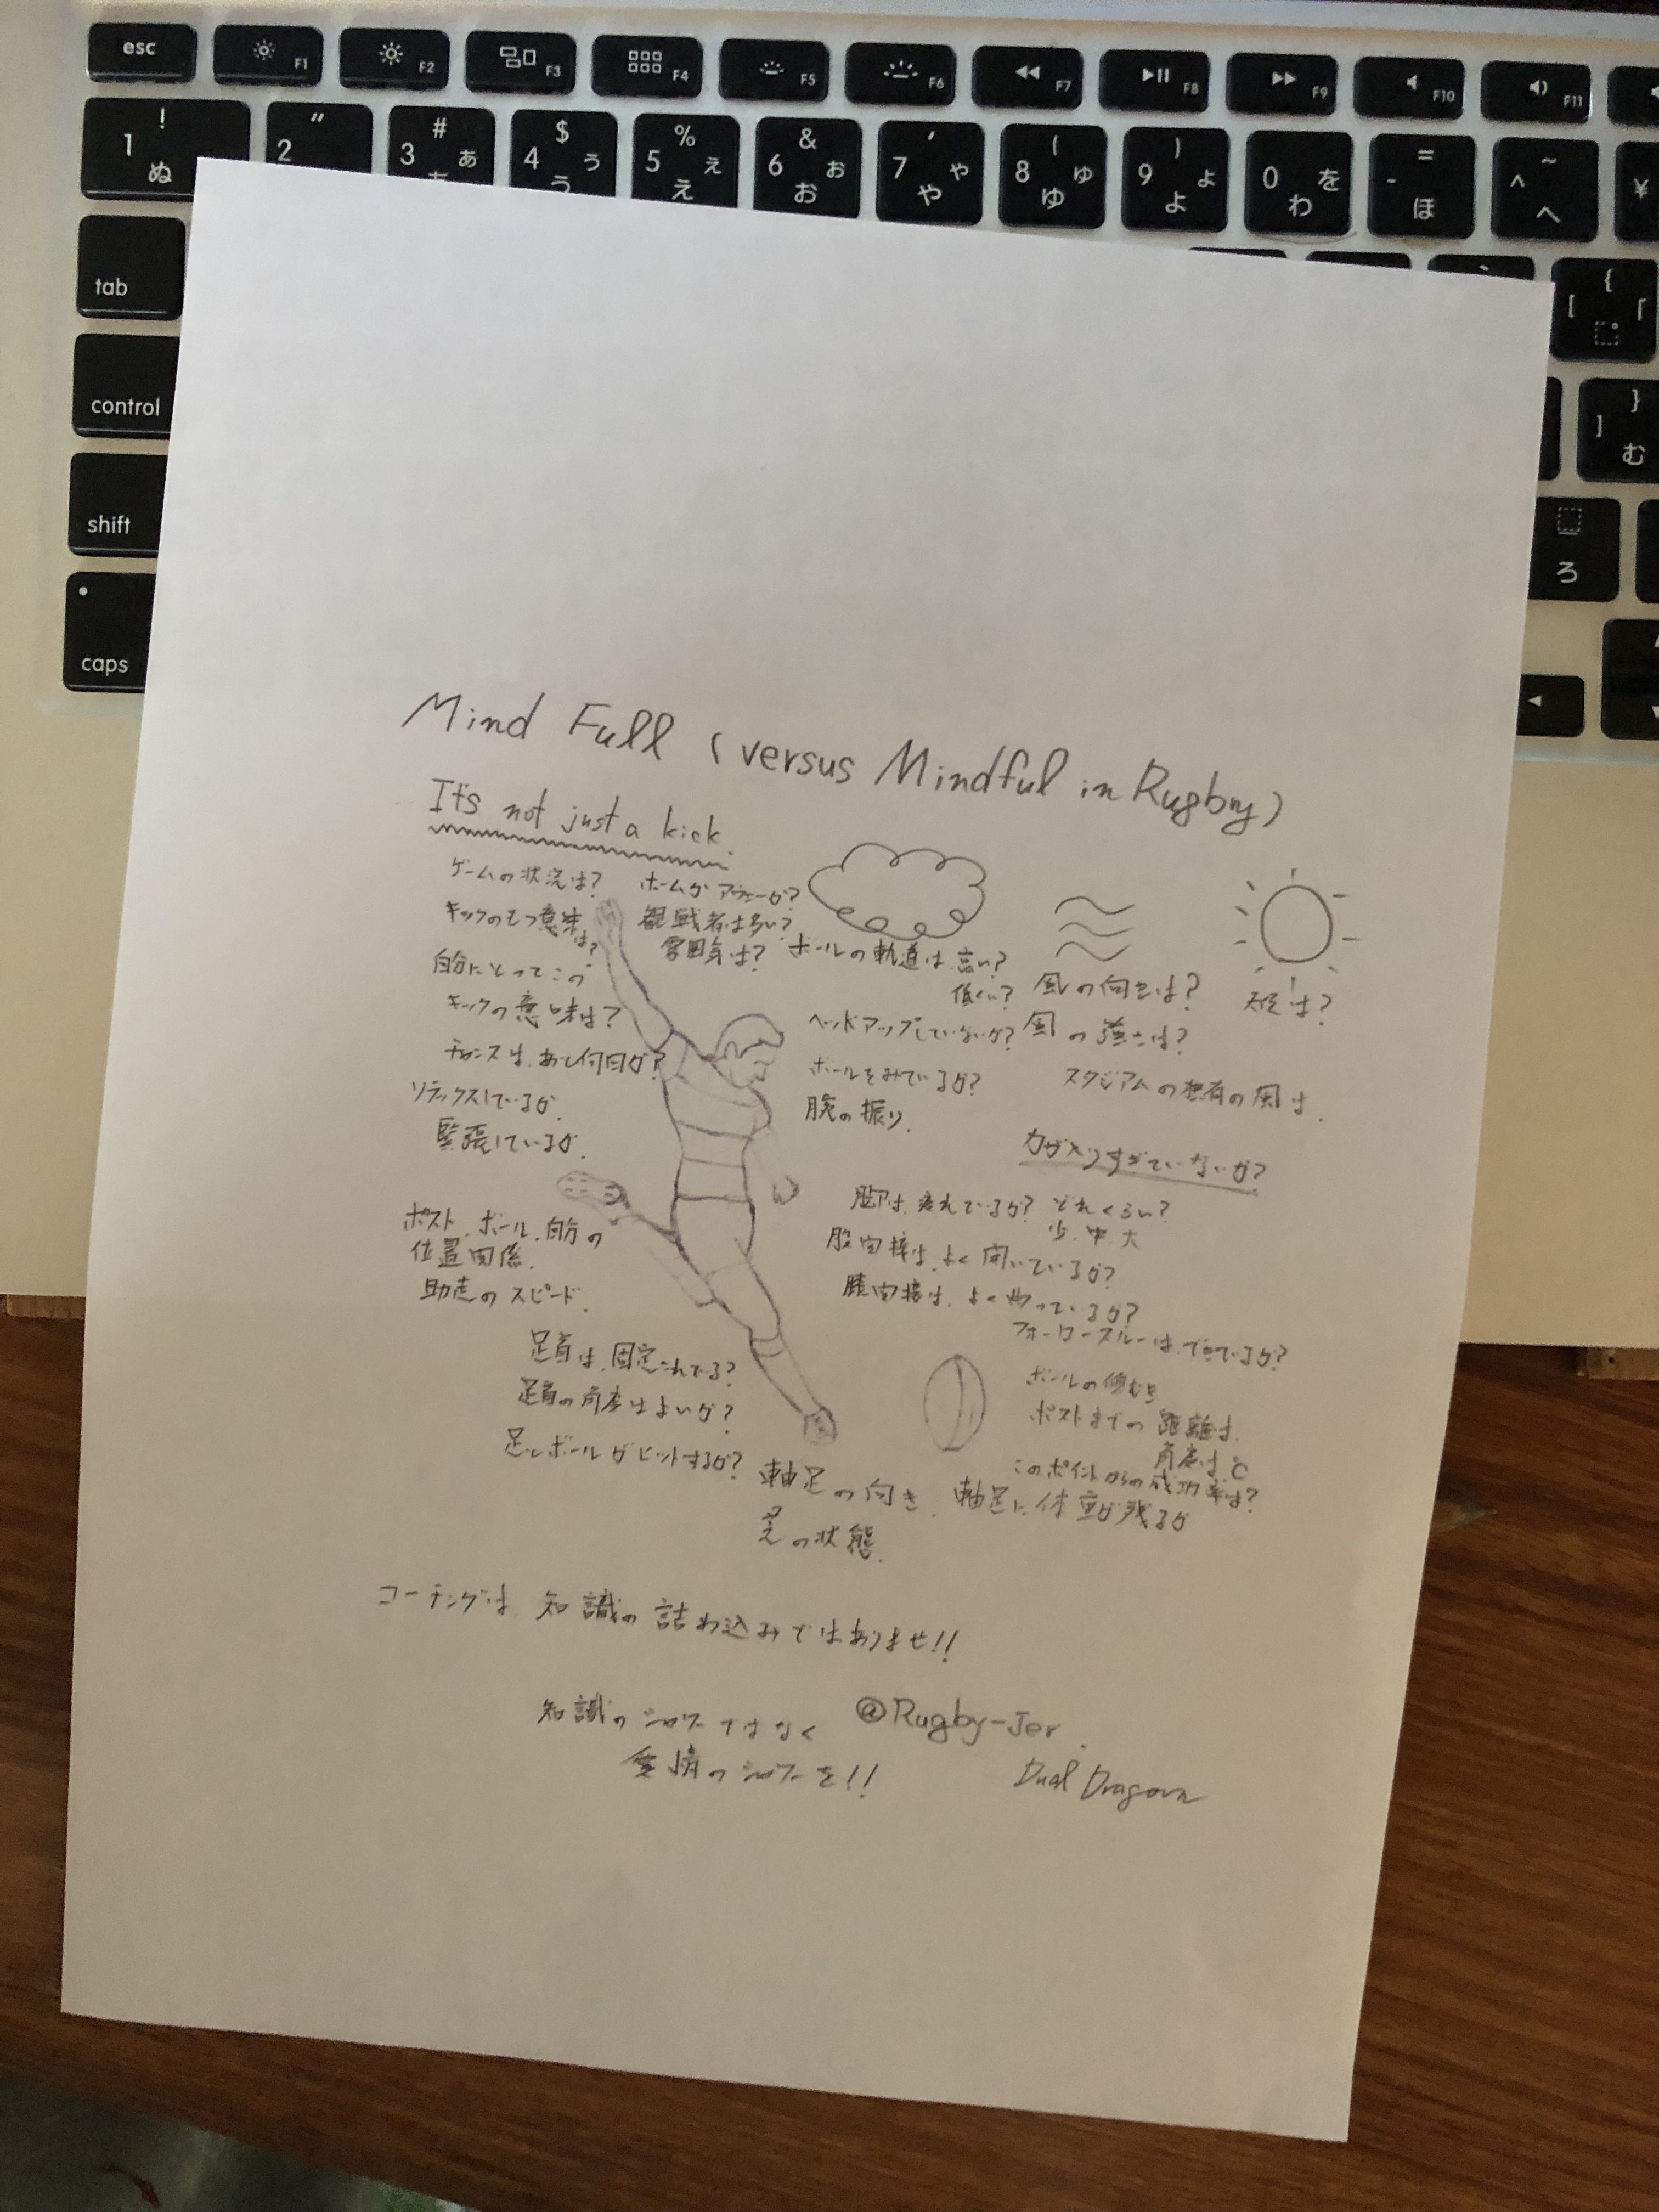 esc F1 F2 F3 F4 F5 F6 F7 F8 F9 F10 F11
! 1 ぬ " 2 # 3 あ $ 4 う う % 5 え え & 6 お お ' 7 や や ( 8 ゆ ゆ ) 9 よ よ 0 を わ = - ほ ~ ^ へ ¥
tab { [ 「
control } ] む
shift ろ
caps
Mind Full (versus Mindful in Rugby)
It's not just a kick.
ゲームの状況は?
キックのもつ意味は?
自分にとってこの
キックの意味は?
チャンスは、あと何回か?
リラックスしているか
緊張しているか.
ホームか アウェーか?
観戦者は多い?
雰囲気は?
ボールの軌道は 高い?
低い?
ヘッドアップしていないか?
ボールをみているか?
腕の振り.
風の向きは?
風の強さは?
スタジアムの独有の風は.
天足は?
力が入りすぎていないか?
脚は、疲れているか? どれくらい?
少.中.大
股関接は、よく開いているか?
膝関接は、よく曲っているか?
フォーロースルーは、できているか?
ポスト.ボール.自分の
位置関係.
助走のスピード.
足首は、固定されてる?
足首の角度はよいか?
足とボールがヒットするか?
ボールの傾むき
ポストまでの 距離は.
角度は ℃
このポイントからの成功率は?
軸足の向き. 軸足に体重が残るか
芝の状態.
コーチングは、知識の詰め込みではありませ!!
知識のシャワーではなく
愛情のシャワーを!!
@Rugby-Jer.
Dual Dragon